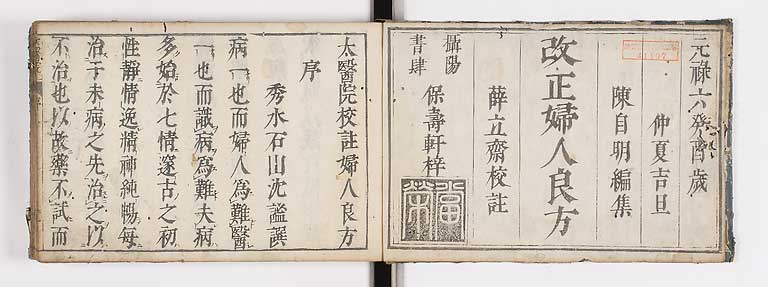 元祿六癸酉歲
仲夏吉旦
陳自明編集
改正婦人良方
薛立齋校註
攝陽
書肆
保壽軒梓
太醫院校註婦人良方
序
秀水石山沈謐譔
病一也而婦人爲難醫
一也而識病爲難夫病
多始於七情邃古之初
性靜情逸精神純暢每
治于未病之先治之以
不治也以故藥不試而